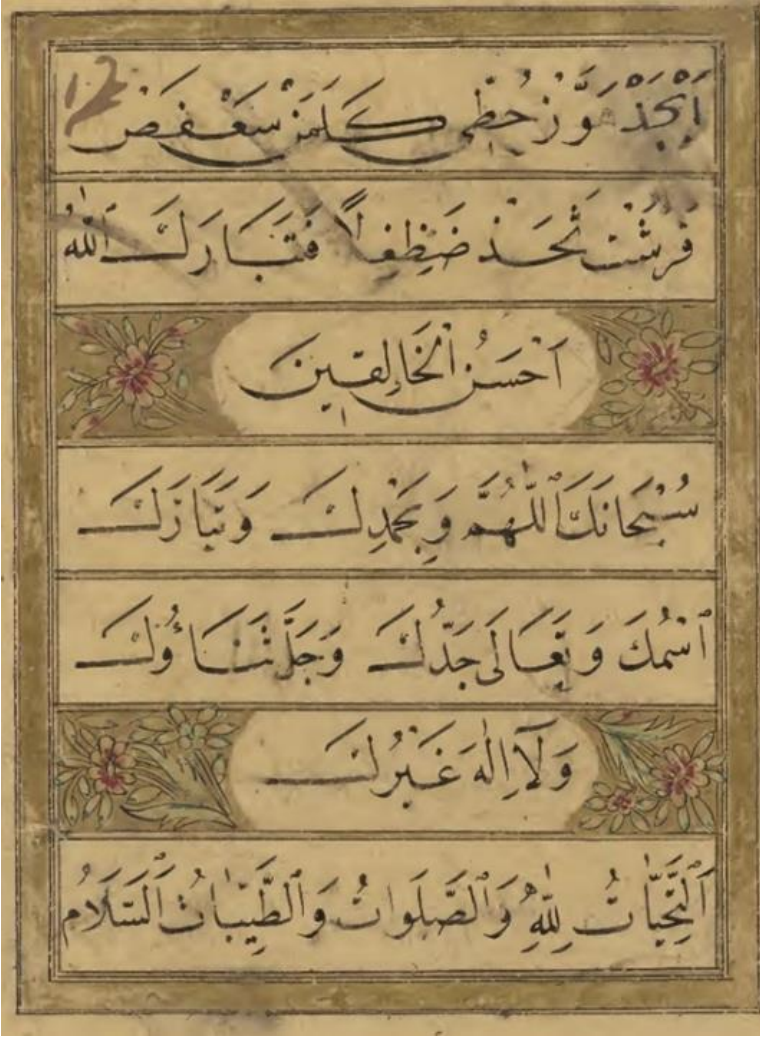 12
اَبْجَدْ هَوَّزْ حُطِّى كَلَمَنْ سَعْفَصْ
قَرَشَتْ ثَخَذْ ضَظِغِلًا فَتَبَارَكَ اللّٰهُ
اَحْسَنُ الْخَالِقينَ
سُبْحَانَكَ اللّٰهُمَّ وَبِحَمْدِكَ وَتَبَارَكَ
اسْمُكَ وَتَعَالَى جَدُّكَ وَجَلَّ ثَنَاؤُكَ
وَلَآ اِلٰهَ غَيْرُكَ
اَلتَّحِيَّاتُ لِلّٰهِ وَالصَّلَوَاتُ وَالطَّيِّبَاتُ اَلسَّلَامُ